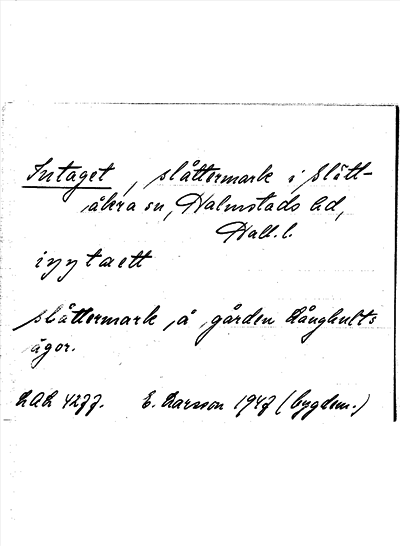 Intaget, slåttermark i Slätt-
åkra sn, Halmstads hd,
Hall. l.
slåttermark å gården Långhults
ägor.
LAL 4277. E. Larsson 1947 (bygdem.)